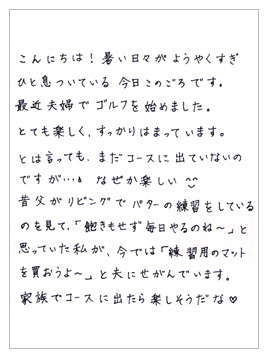 こんにちは！暑い日々がようやくすぎ
ひと息ついている今日このごろです。
最近夫婦でゴルフを始めました。
とても楽しく、すっかりはまっています。
とは言っても、まだコースに出ていないの
ですが…💧なぜか楽しい
昔父がリビングでパターの練習をしている
のを見て、「飽きもせず毎日やるのね〜」と
思っていた私が、今では「練習用のマット
を買おうよ〜」と夫にせがんでいます。
家族でコースに出たら楽しそうだな♡